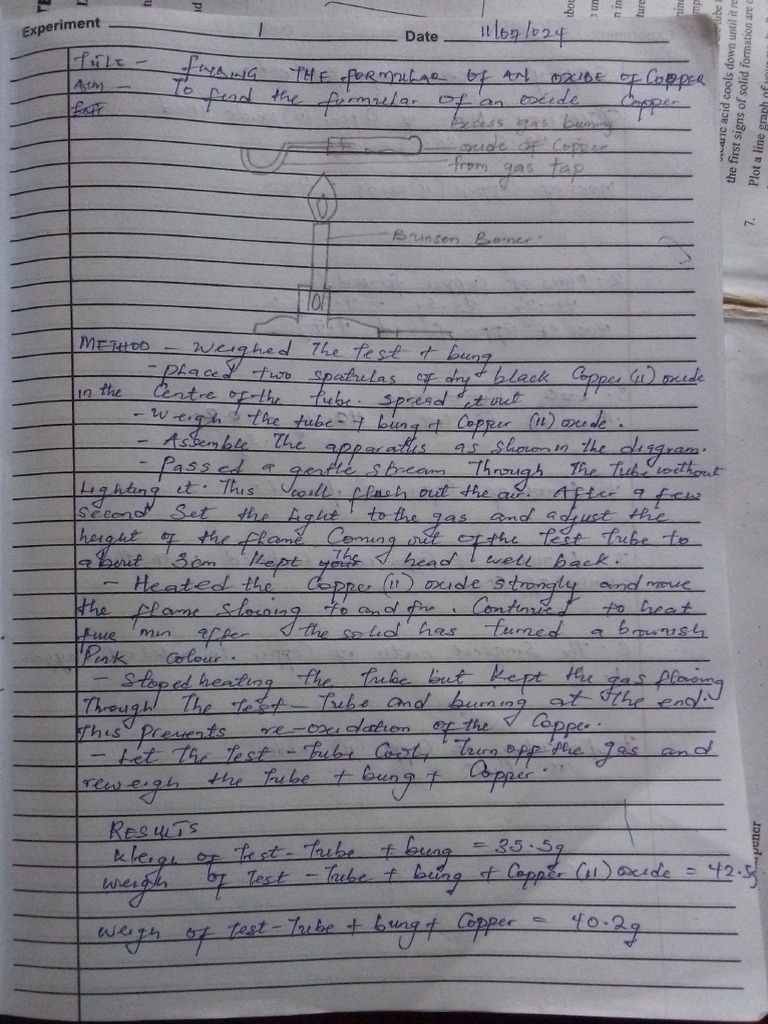 Experiment 1 Date 11/07/024
TITLE - FINDING THE FORMULAR OF AN OXIDE OF COPPER
AIM - To find the formular of an oxide Copper
Excess gas burning
oxide of Copper
from gas tap
Brunsen Burner.
METHOD - Weighed The test + bung
- placed two spatulas of dry black Copper (II) oxide
in the Centre of the tube. spread it out
- weigh the tube + bung + Copper (II) oxide.
- Assemble The apparatus as shown in the diagram.
- Passed a gentle stream Through The Tube without
Lighting it. This will flush out the air. After a few
second Set the light to the gas and adjust the
height of the flame Coming out of the Test tube to
about 3cm Kept The head well back.
- Heated the Copper (II) oxide strongly and move
the flame slowing to and fro. Continued to heat
five min after the solid has turned a brownish
Pink colour.
- Stoped heating the Tube but kept the gas flowing
Through The Test-Tube and burning at the end.
This Prevents re-oxidation of the Copper.
- Let The Test-Tube Cool, turn off the gas and
reweigh the tube + bung + Copper.
RESULTS
Weigh of Test-Tube + bung = 35.5g
weigh of Test-Tube + bung + Copper (II) oxide = 42.5g
weigh of test-Tube + bung + Copper = 40.2g
acid cools down until it
the first signs of solid formation are
7. Plot a line graph of